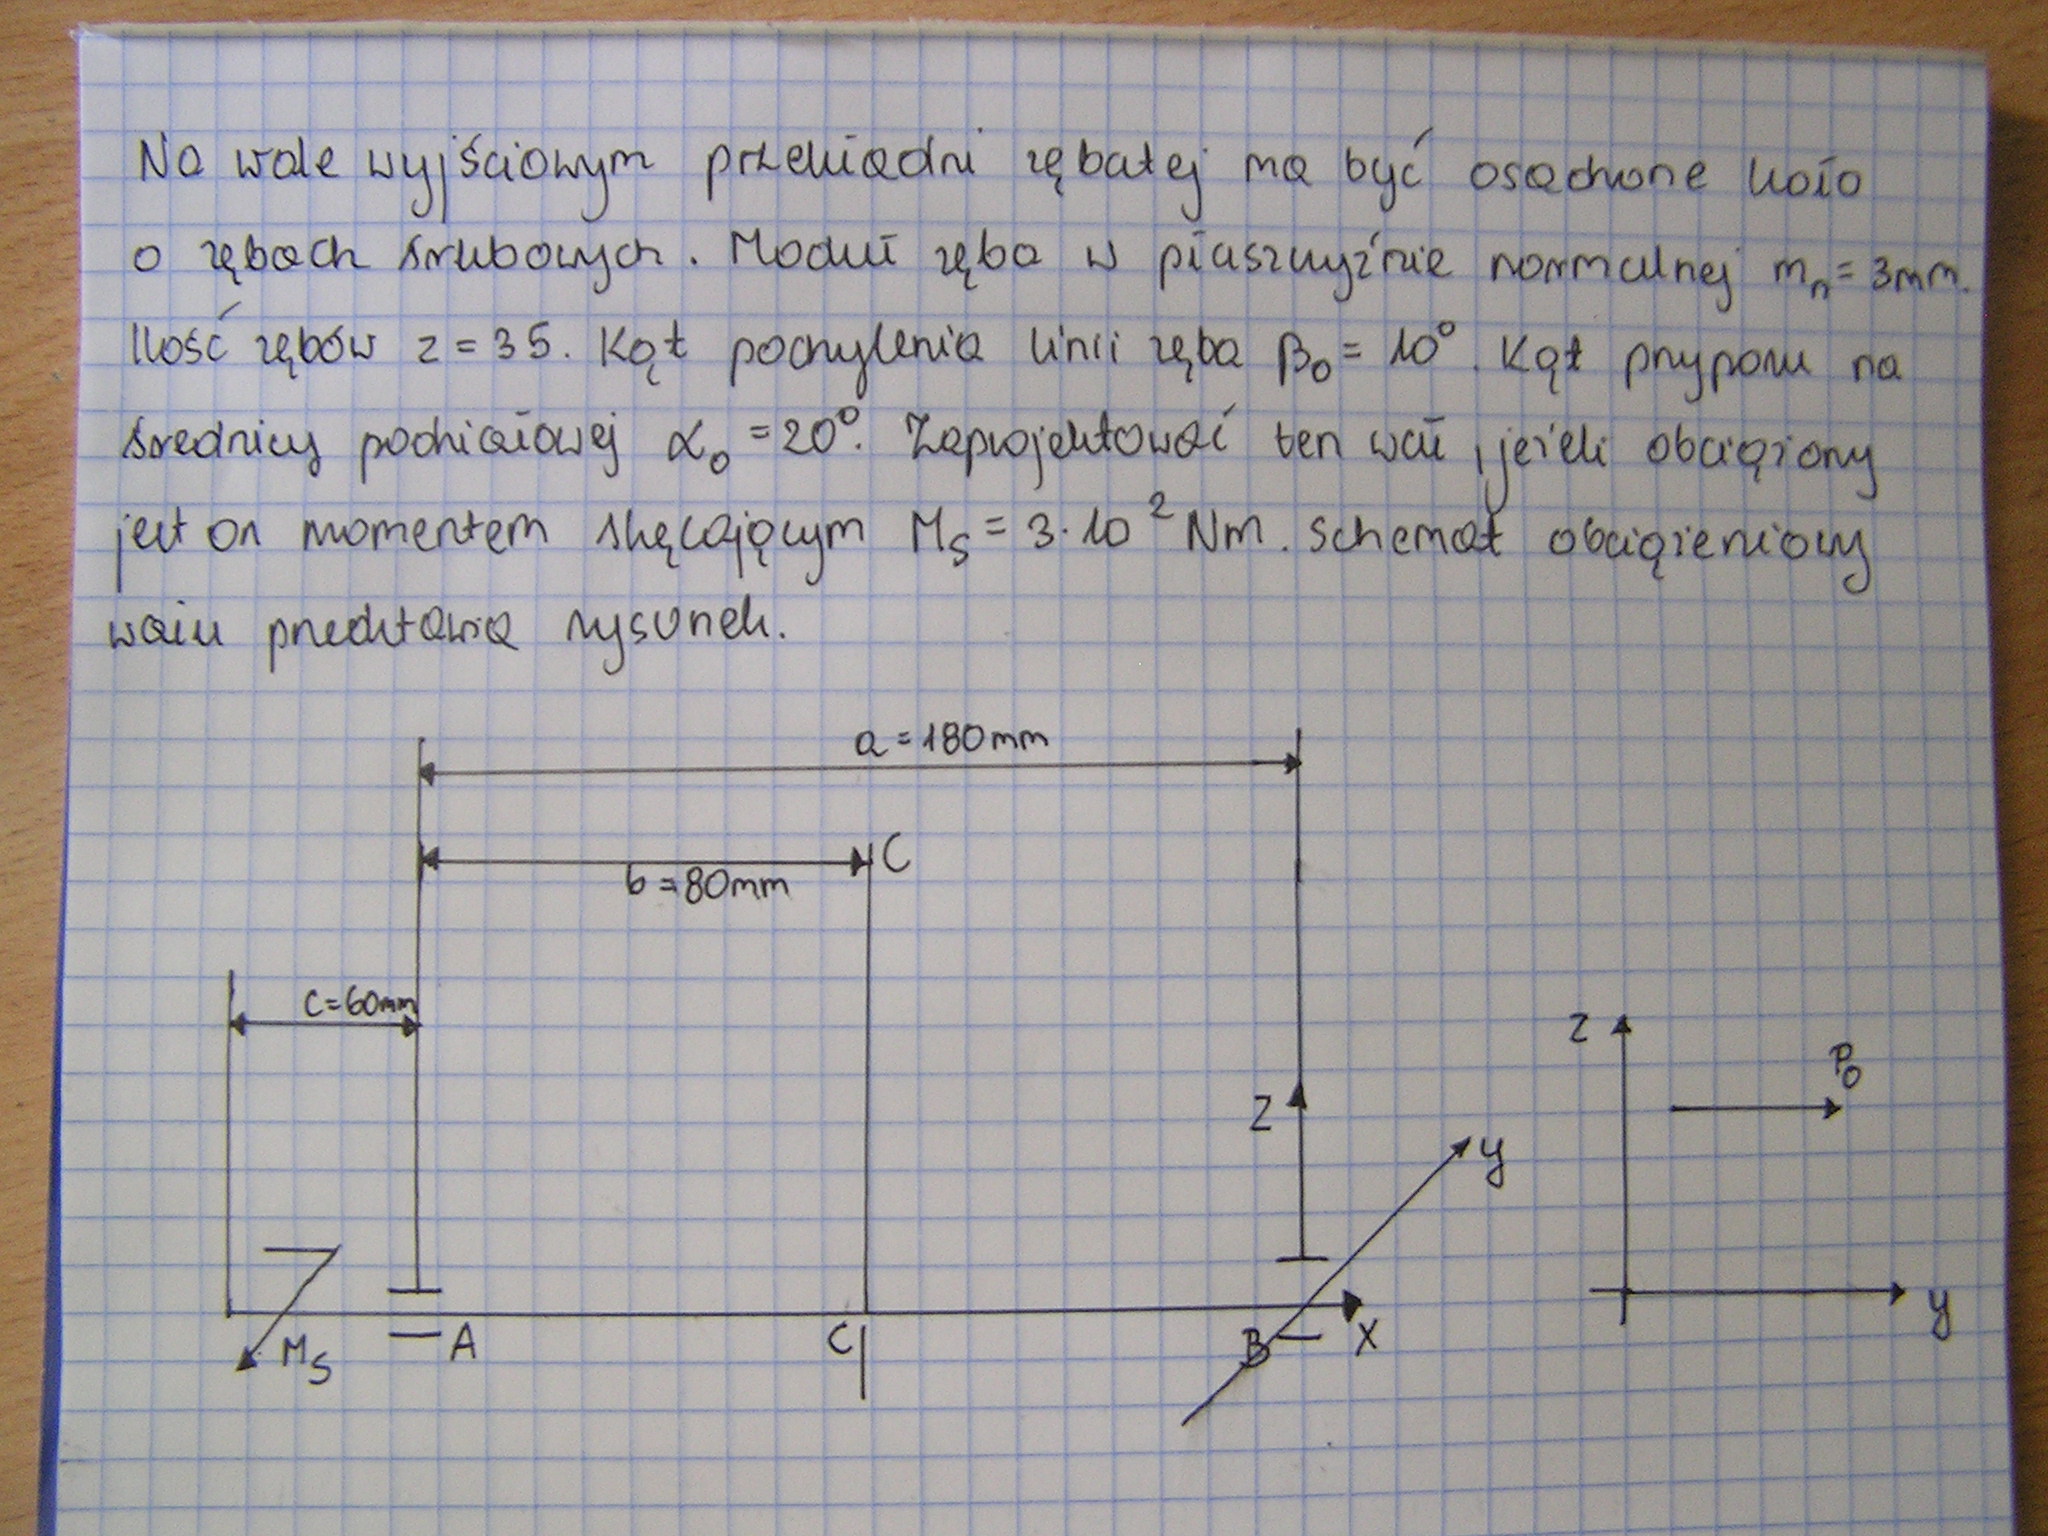 Na wale wyjściowym przekładni zębatej ma być osadzone koło
o zębach śrubowych. Moduł zęba w płaszczyźnie normalnej mₙ = 3mm.
Ilość zębów z = 35. Kąt pochylenia linii zęba β₀ = 10°. Kąt przyporu na
średnicy podziałowej α₀ = 20°. Zaprojektować ten wał, jeżeli obciążony
jest on momentem skręcającym M_S = 3·10² Nm. Schemat obciążeniowy
wału przedstawia rysunek.
a = 180mm
C
b = 80mm
c = 60mm
z
P₀
z
y
M_S
A
C
B
x
y